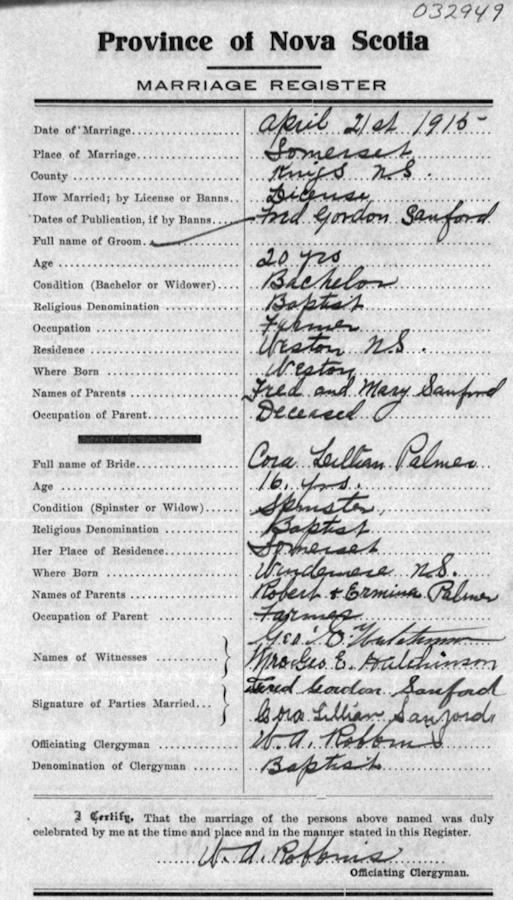 032949
Province of Nova Scotia
MARRIAGE REGISTER
Date of Marriage April 21st 1915
Place of Marriage Somerset
County Kings N.S.
How Married; by License or Banns License
Dates of Publication, if by Banns Fred Gordon Sanford
Full name of Groom
Age 20 yrs
Condition (Bachelor or Widower) Bachelor
Religious Denomination Baptist
Occupation Farmer
Residence Weston N.S.
Where Born Weston
Names of Parents Fred and Mary Sanford
Occupation of Parent Deceased
Full name of Bride Cora Lillian Palmer
Age 16. yrs.
Condition (Spinster or Widow) Spinster
Religious Denomination Baptist
Her Place of Residence Somerset
Where Born Windemere N.S.
Names of Parents Robert & Ermina Palmer
Occupation of Parent Farmer
Geo.
Names of Witnesses Mrs Geo E. Hutchinson
Fred Gordon Sanford
Signature of Parties Married
Cora Lillian Sanford
Officiating Clergyman W. A. Robbins
Denomination of Clergyman Baptist
I Certify, That the marriage of the persons above named was duly
celebrated by me at the time and place and in the manner stated in this Register.
W. A. Robbins
Officiating Clergyman.